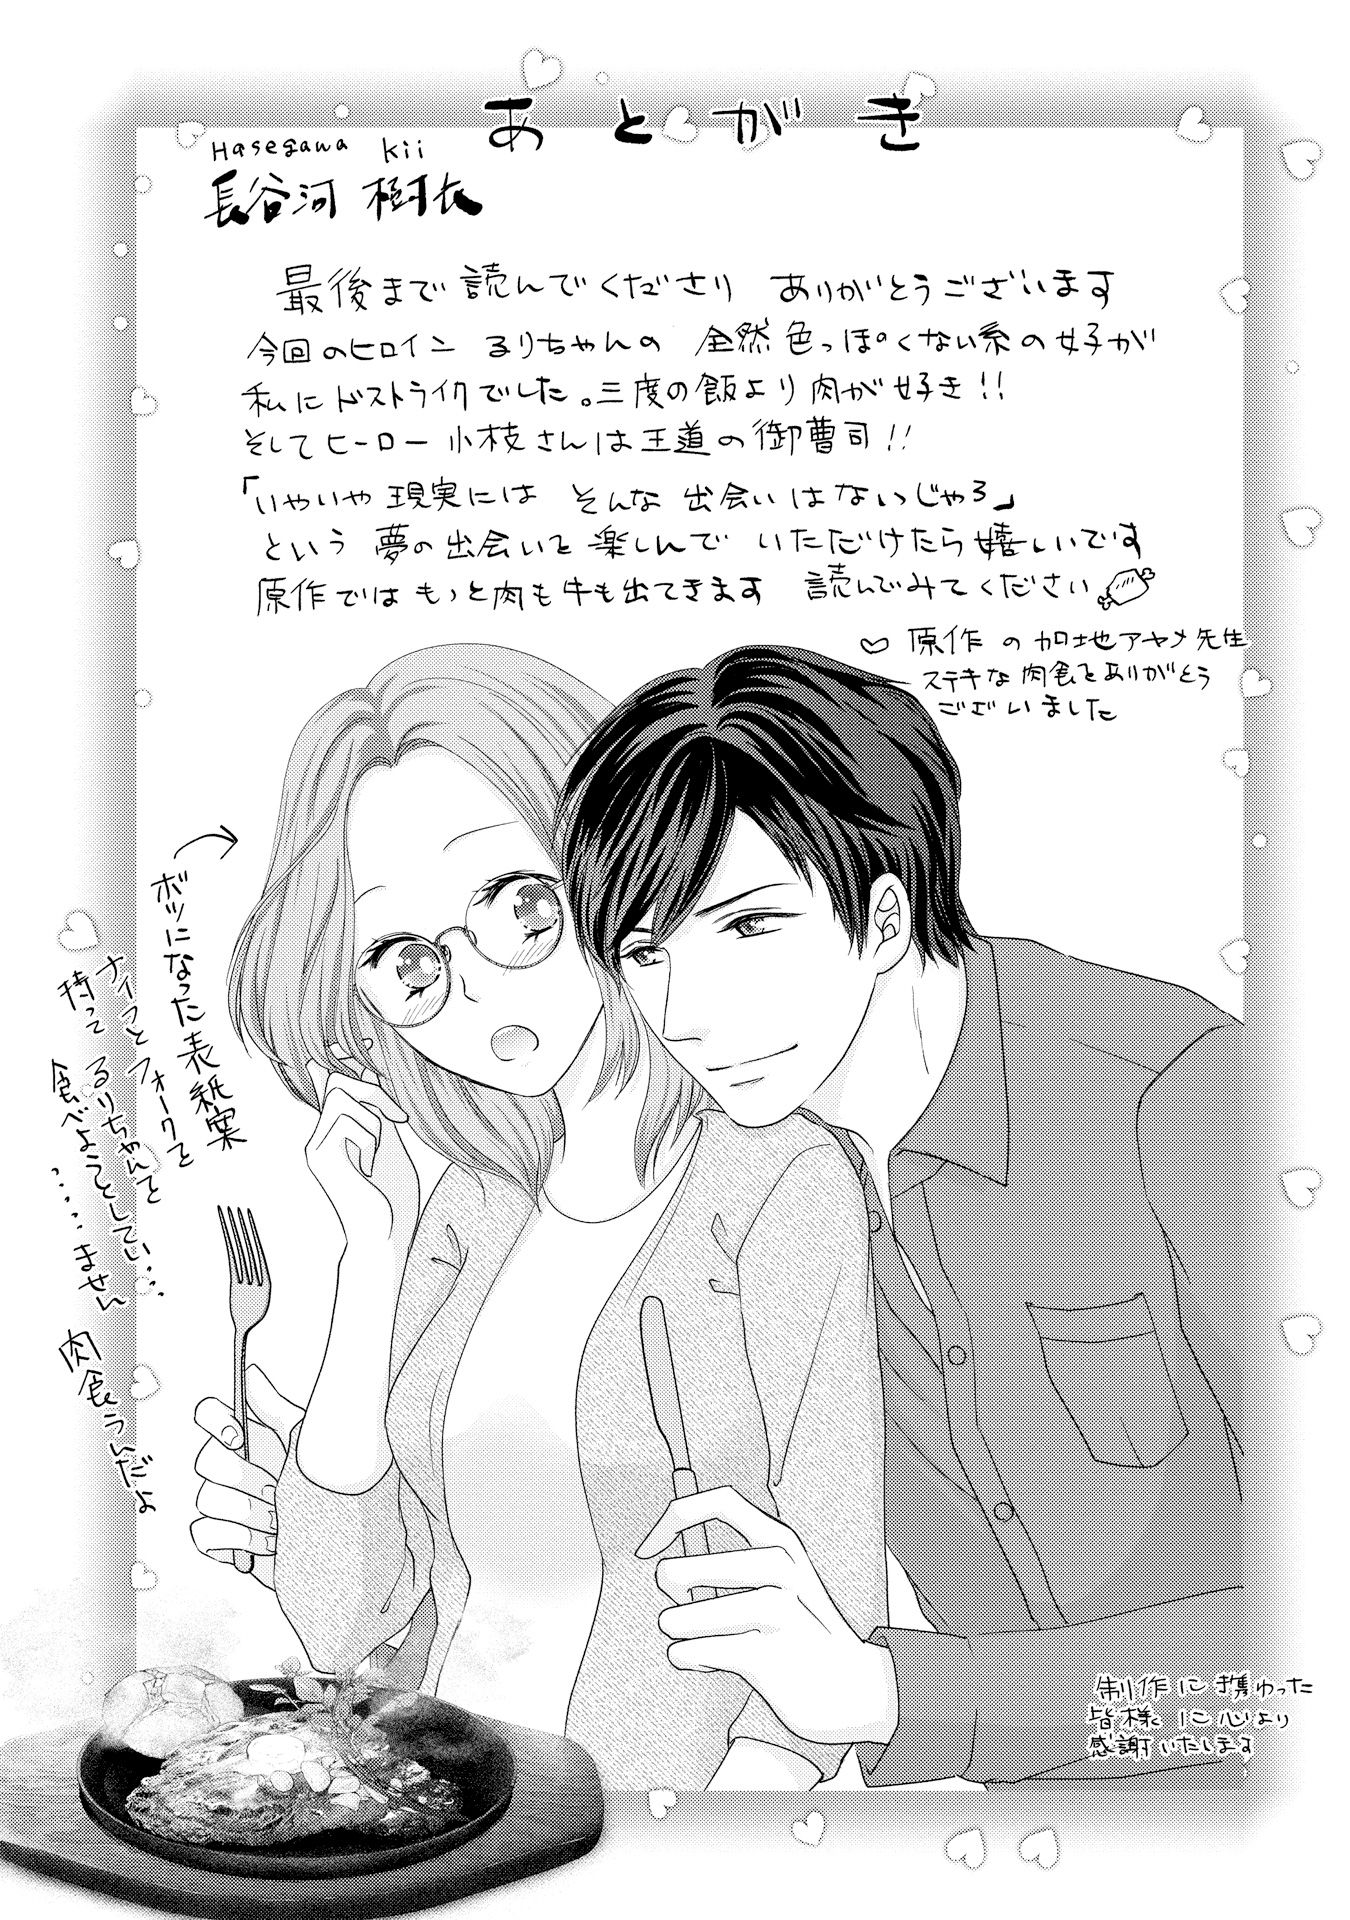 あとがき
Hasegawa kii
長谷河 樹衣
最後まで読んでくださり ありがとうございます
今回のヒロイン るりちゃんの 全然色っぽくない系の女子が
私にドストライクでした。三度の飯より肉が好き!!
そしてヒーロー 小枝さんは王道の御曹司!!
「いやいや現実には そんな 出会いはないっじゃろ」
という 夢の出会いを楽しんで いただけたら嬉しいです
原作では もっと肉も牛も出てきます 読んでみてください
♡ 原作 の 加地アヤメ先生
ステキな 肉食をありがとう
ございました
ボツになった表紙案
ナイフとフォークを
持って るりちゃんを
食べようとしてい…
……ません
肉食うんだよ
制作に携わった
皆様に心より
感謝いたします